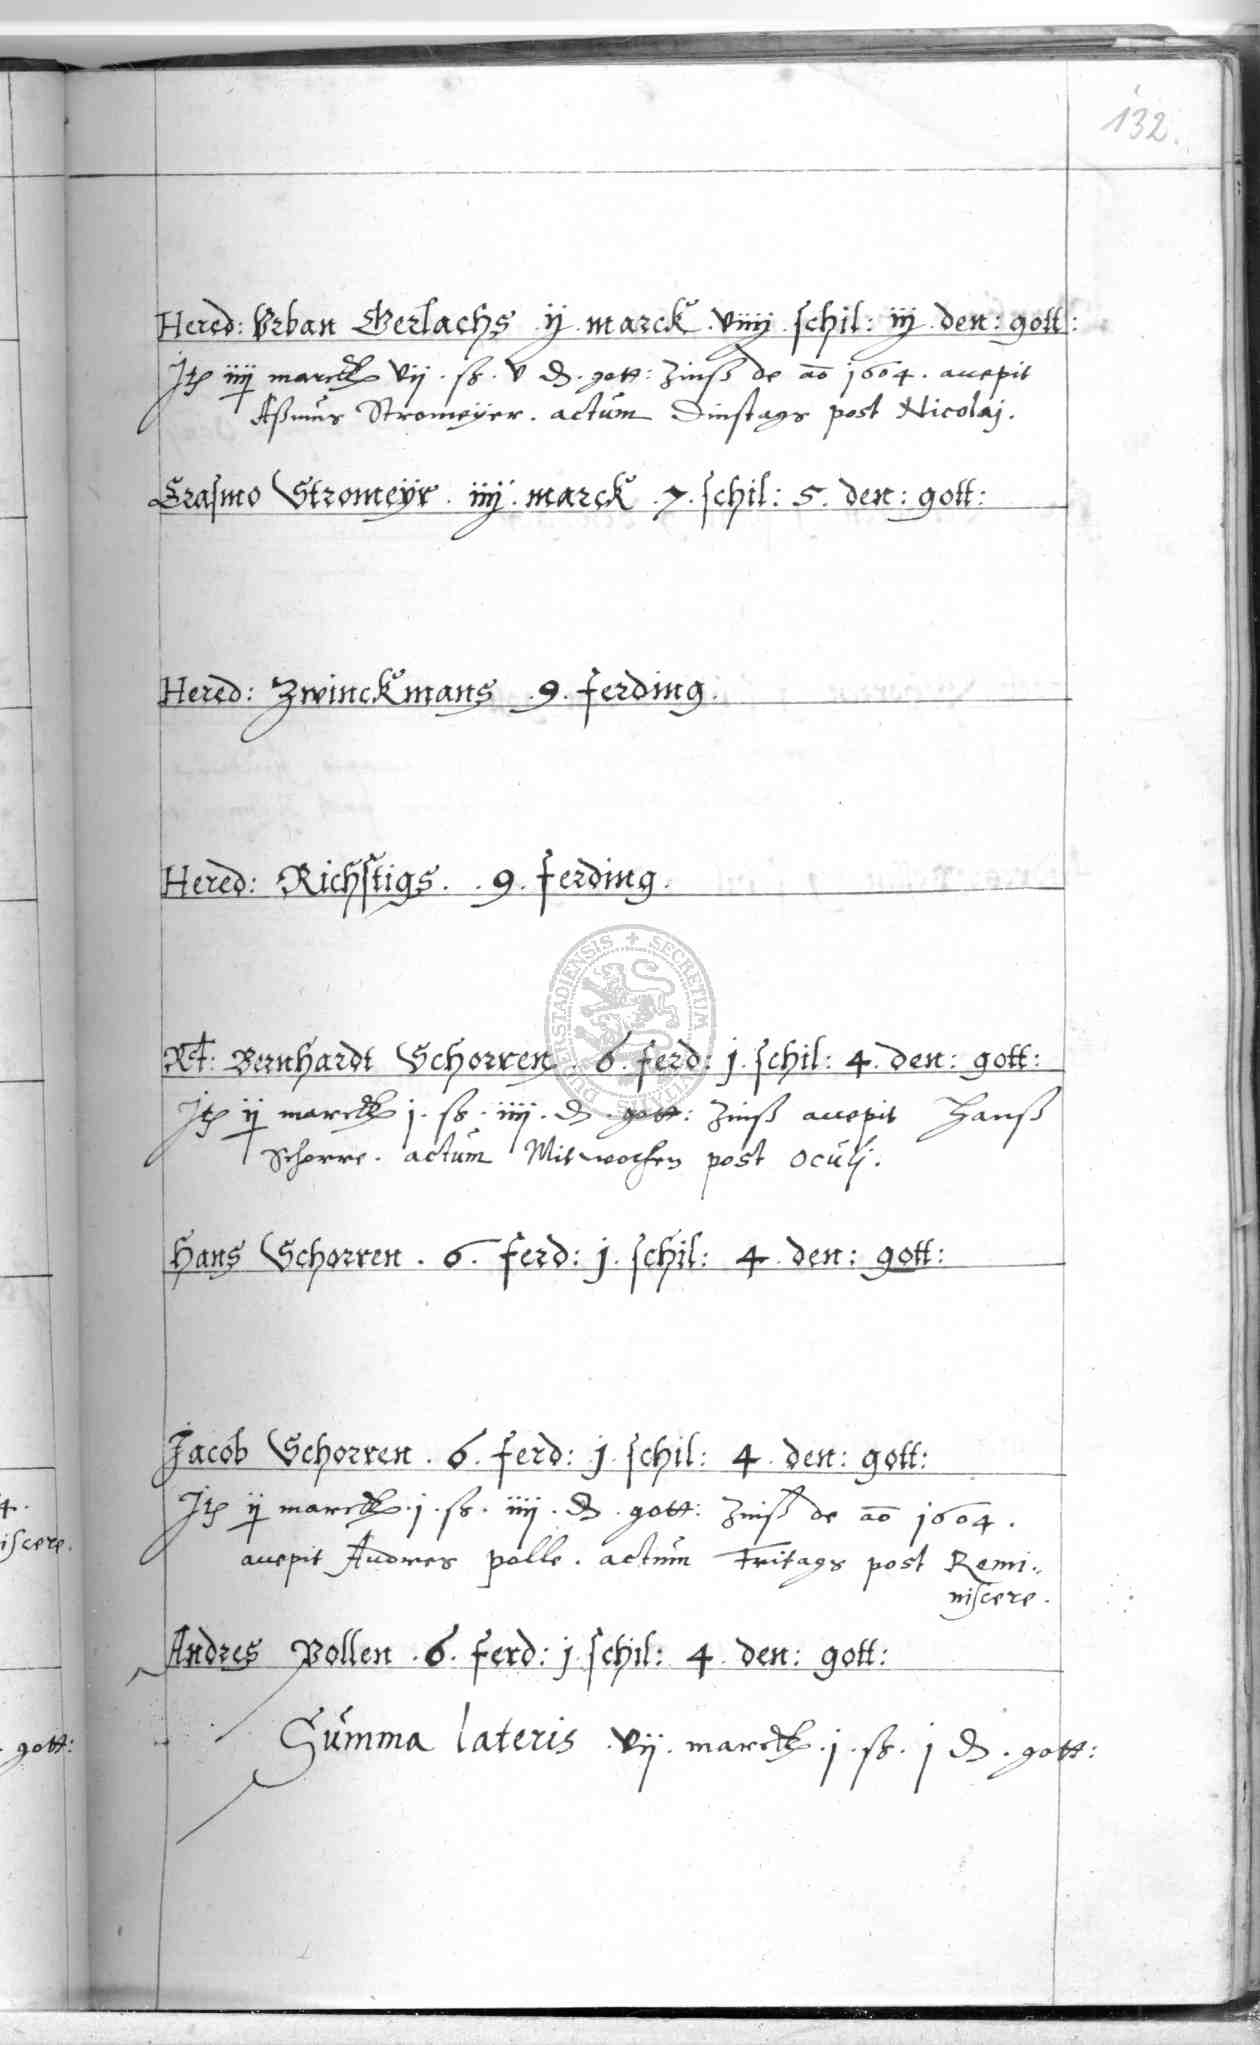 132.
Hered: Vrban Gerlachs ij marck viiij schil: iij den: gott:
Jtē iiij marck vij . sß . v ₰ . gott: Zinß de aō 1604 . accepit
Aßmus Stromeÿer . actum Dinstags post Nicolaj .
Erasmo Stromeÿr . iiij . marck . 7 . schil: 5 . den: gott:
Hered: Zwinckmans . 9 . ferding .
Hered: Richstigs . . 9 . ferding .
Bernhardt Schorren . 6 . ferd: j . schil: 4 . den: gott:
Jtē ij marck j . sß . iiij . ₰ . gott: Zinß accepit Hanß
Schorre . actum Mitwochen post oculj .
Hans Schorren . 6 . ferd: j . schil: 4 . den: gott:
DUDERSTADIENSIS + SECRETUM CIVITATIS
Jacob Schorren . 6 . ferd: j . schil: 4 . den: gott:
Jtē ij marck . j . sß . iiij . ₰ . gott: Zinß de aō 1604 .
accepit Andres polle . actum Fritags post Remi-
niscere .
Andres Pollen . 6 . ferd: j . schil: 4 . den: gott:
Summa lateris . vij . marck . j . sß . j ₰ . gott:
4 .
iscere .
. gott: